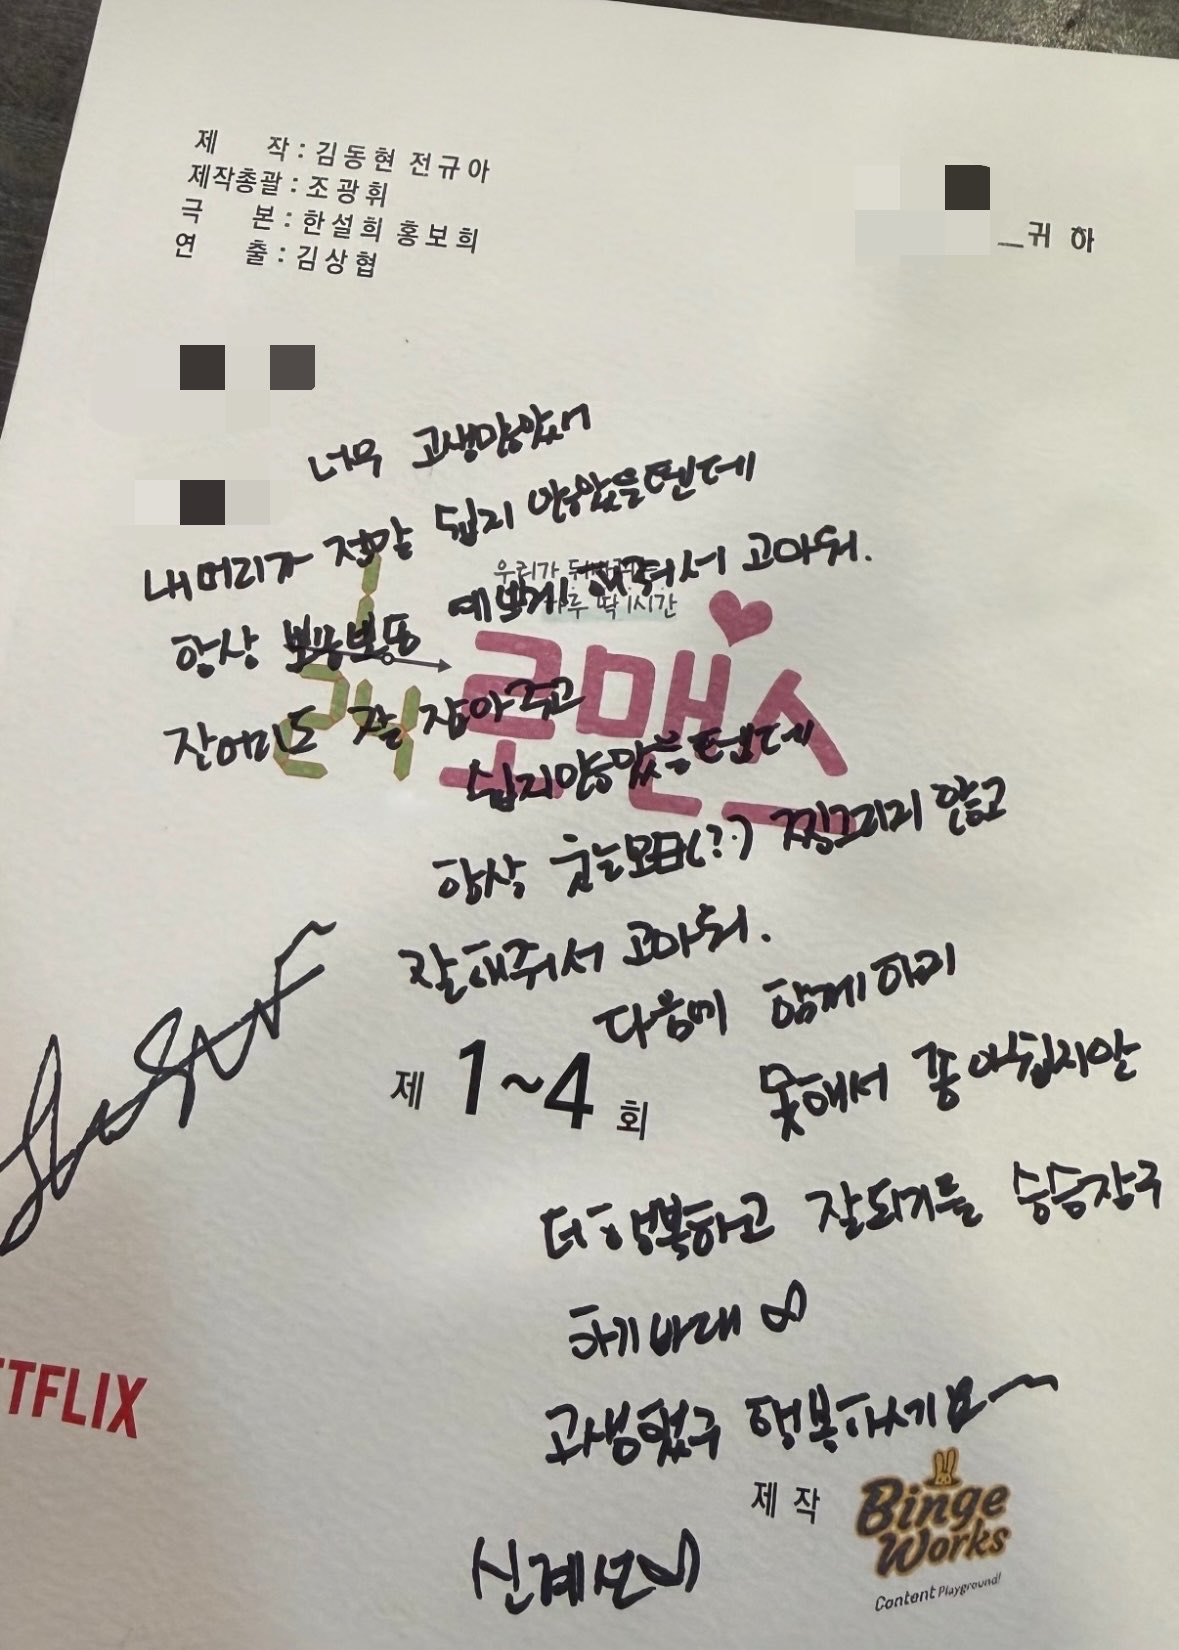 제 작 : 김동현 전규아
제작총괄 : 조광휘
극 본 : 한설희 홍보희
연 출 : 김상협
귀 하
너무 고생많았어
내머리가 정말 쉽지 않았을텐데
항상 뽀송뽀송 예쁘게 해줘서 고마워.
우리가
하루 딱 1시간
24 로맨스
잔머리도 잘 잡아주고
쉽지않았을텐데
항상 웃는모습(?) 찡그리지 않고
잘해줘서 고마워.
다음에 함께하지
못해서 좀 아쉽지만
제 1~4 회
더 행복하고 잘되기를 승승장구
하기 바래
고생했구 행복하세요~
TFLIX
제 작
Binge Works
Content Playground!